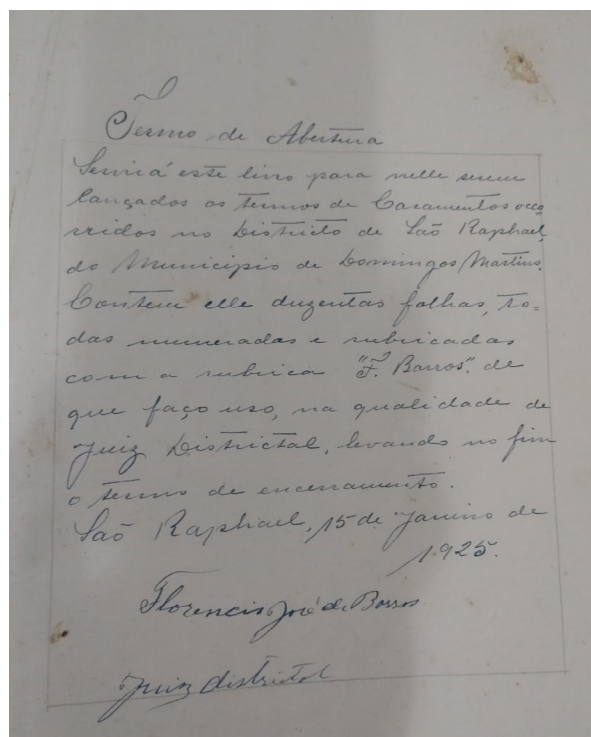 Termo de Abertura
Servirá este livro para nelle serem
lançados os termos de Casamentos occo-
rridos no Districto de São Raphael,
do Municipio de Domingos Martins.
Contem elle duzentas folhas, to=
das numeradas e rubricadas
com a rubrica "F. Barros", de
que faço uso, na qualidade de
Juiz Districtal, levando no fim
o termo de encerramento.
São Raphael, 15 de Janeiro de
1925.
Florencio José de Barros
Juiz districtal